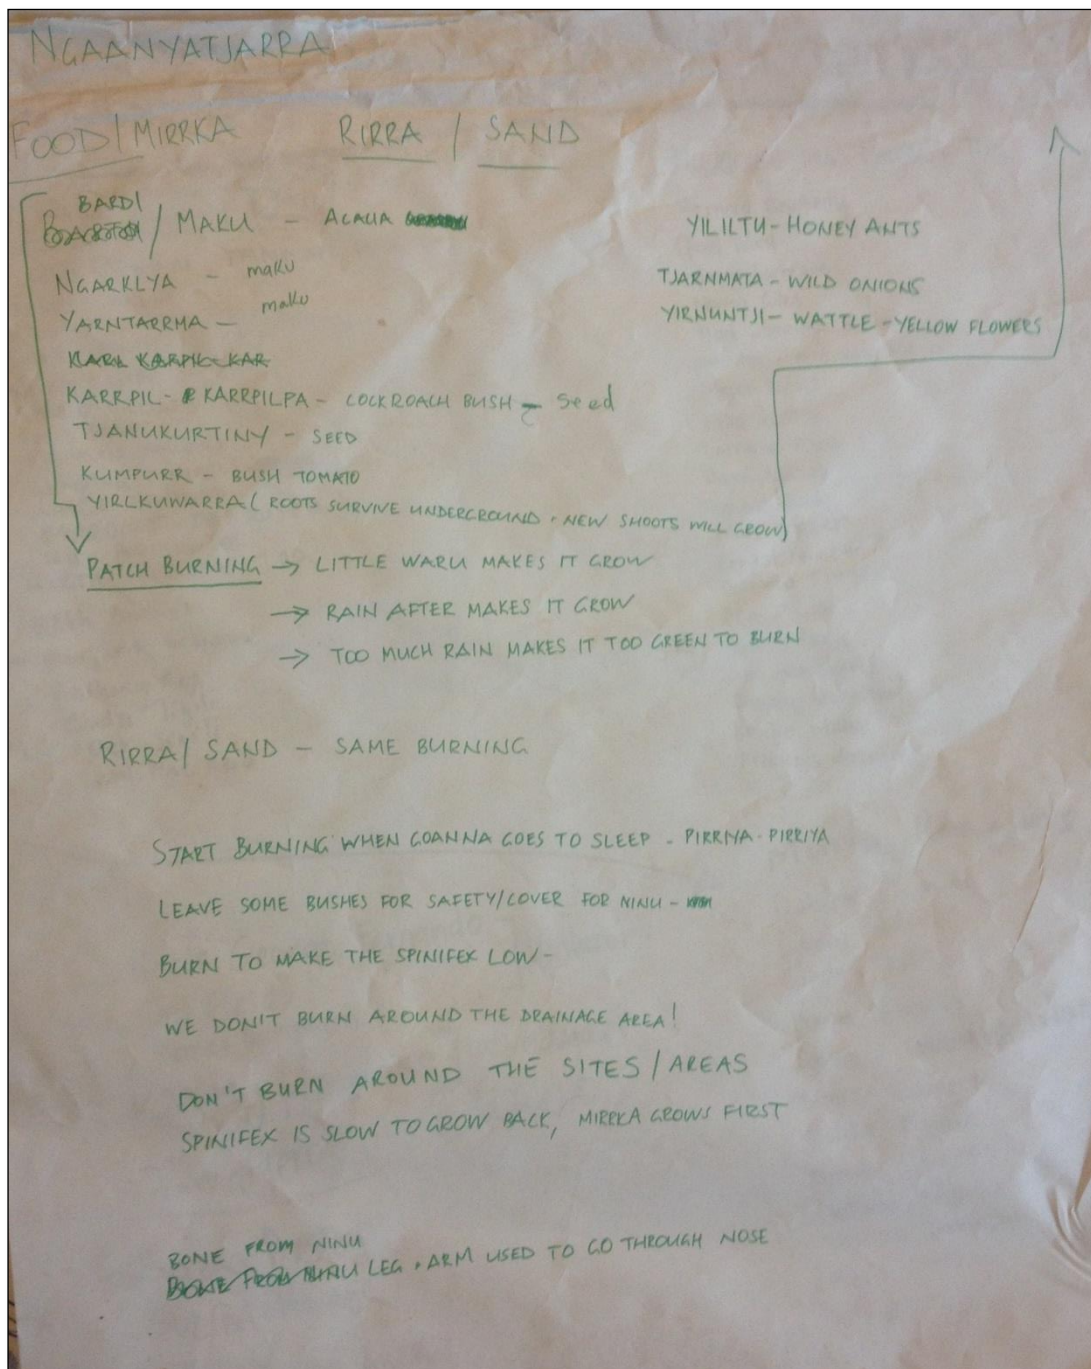 NGAANYATJARRA
FOOD/MIRRKA RIRRA / SAND
BARDI
/ MAKU - ACACIA
NGARKLYA - maku
YARNTARRMA - maku
KARRPIL- KARRPILPA - COCKROACH BUSH - Seed
TJANUKURTINY - SEED
KUMPURR - BUSH TOMATO
YIRLKUWARRA ( ROOTS SURVIVE UNDERGROUND . NEW SHOOTS WILL GROW)
YILILTU - HONEY ANTS
TJARNMATA - WILD ONIONS
YIRNUNTJI - WATTLE - YELLOW FLOWERS
PATCH BURNING → LITTLE WARU MAKES IT GROW
→ RAIN AFTER MAKES IT GROW
→ TOO MUCH RAIN MAKES IT TOO GREEN TO BURN
RIRRA/ SAND - SAME BURNING
START BURNING WHEN GOANNA GOES TO SLEEP - PIRRIYA-PIRRIYA
LEAVE SOME BUSHES FOR SAFETY/COVER FOR NINU -
BURN TO MAKE THE SPINIFEX LOW -
WE DON'T BURN AROUND THE DRAINAGE AREA!
DON'T BURN AROUND THE SITES / AREAS
SPINIFEX IS SLOW TO GROW BACK, MIRRKA GROWS FIRST
BONE FROM NINU
LEG . ARM USED TO GO THROUGH NOSE